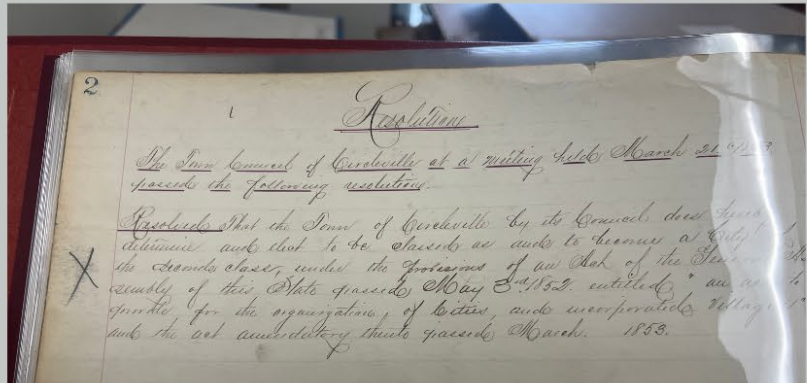 2
Resolutions
The Town Council of Circleville at a meeting held March 21
passed the following resolutions.
Resolved That the Town of Circleville by its Council does
determine and elect to be classed as and to become a City
the second class, under the provisions of an Act of the
sembly of this State passed May 3rd 1852. entitled, "an
provide, for the organization, of Cities, and incorporated Villag
and the act amendatory thereto passed March. 1853.